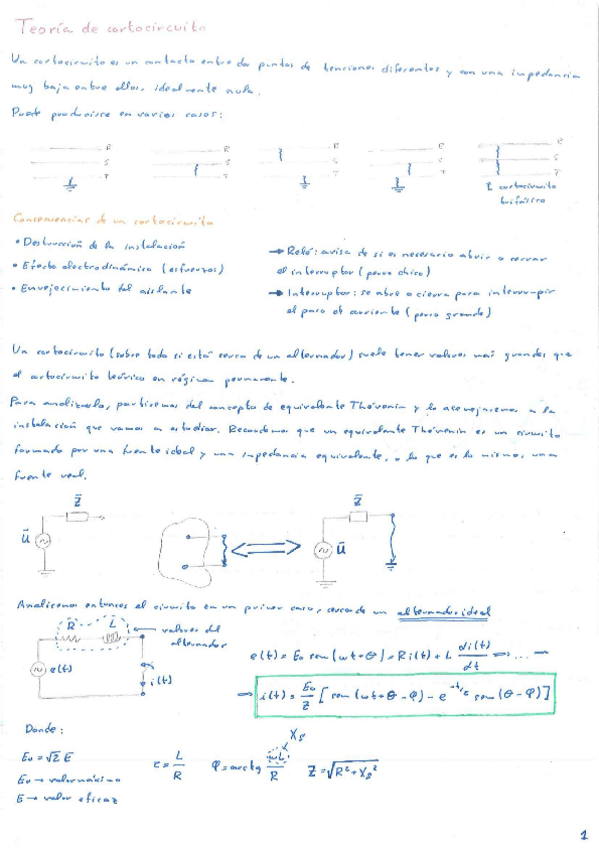 Teoría de cortocircuito
Un cortocircuito es un contacto entre dos puntos de tensiones diferentes y con una impedancia
muy baja entre ellos, idealmente nula.
Puede producirse en varios casos:
R R R R R
S S S S S
T T T T T
cortocircuito
trifásico
Consecuencias de un cortocircuito
• Destrucción de la instalación
• Efecto electrodinámico (esfuerzos)
• Envejecimiento del aislante
→ Relé: avisa de si es necesario abrir o cerrar
el interruptor (perro chico)
→ Interruptor: se abre o cierra para interrumpir
el paso de corriente (perro grande)
Un cortocircuito (sobre todo si está cerca de un alternador) suele tener valores más grandes que
el cortocircuito teórico en régimen permanente.
Para analizarlo, partiremos del concepto de equivalente Thévenin y lo aconsejaremos a la
instalación que vamos a estudiar. Recordemos que un equivalente Thévenin es un circuito
formado por una fuente ideal y una impedancia equivalente, o lo que es lo mismo, una
fuente real.
Z̄ Z̄
Ū Ū
Analicemos entonces el circuito en un primer caso, cerca de un alternador ideal
R L ← valores del
alternador
e(t) i(t)
e(t) = E₀ sen(wt+θ) = R i(t) + L di(t)/dt ⇒ ... →
→ i(t) = E₀/Z [sen(wt+θ-φ) - e^(-t/τ) sen(θ-φ)]
Donde:
Xs
E₀ = √2 E
τ = L/R φ = arctg wL/R Z = √(R² + Xs²)
E₀ → valor máximo
E → valor eficaz
1